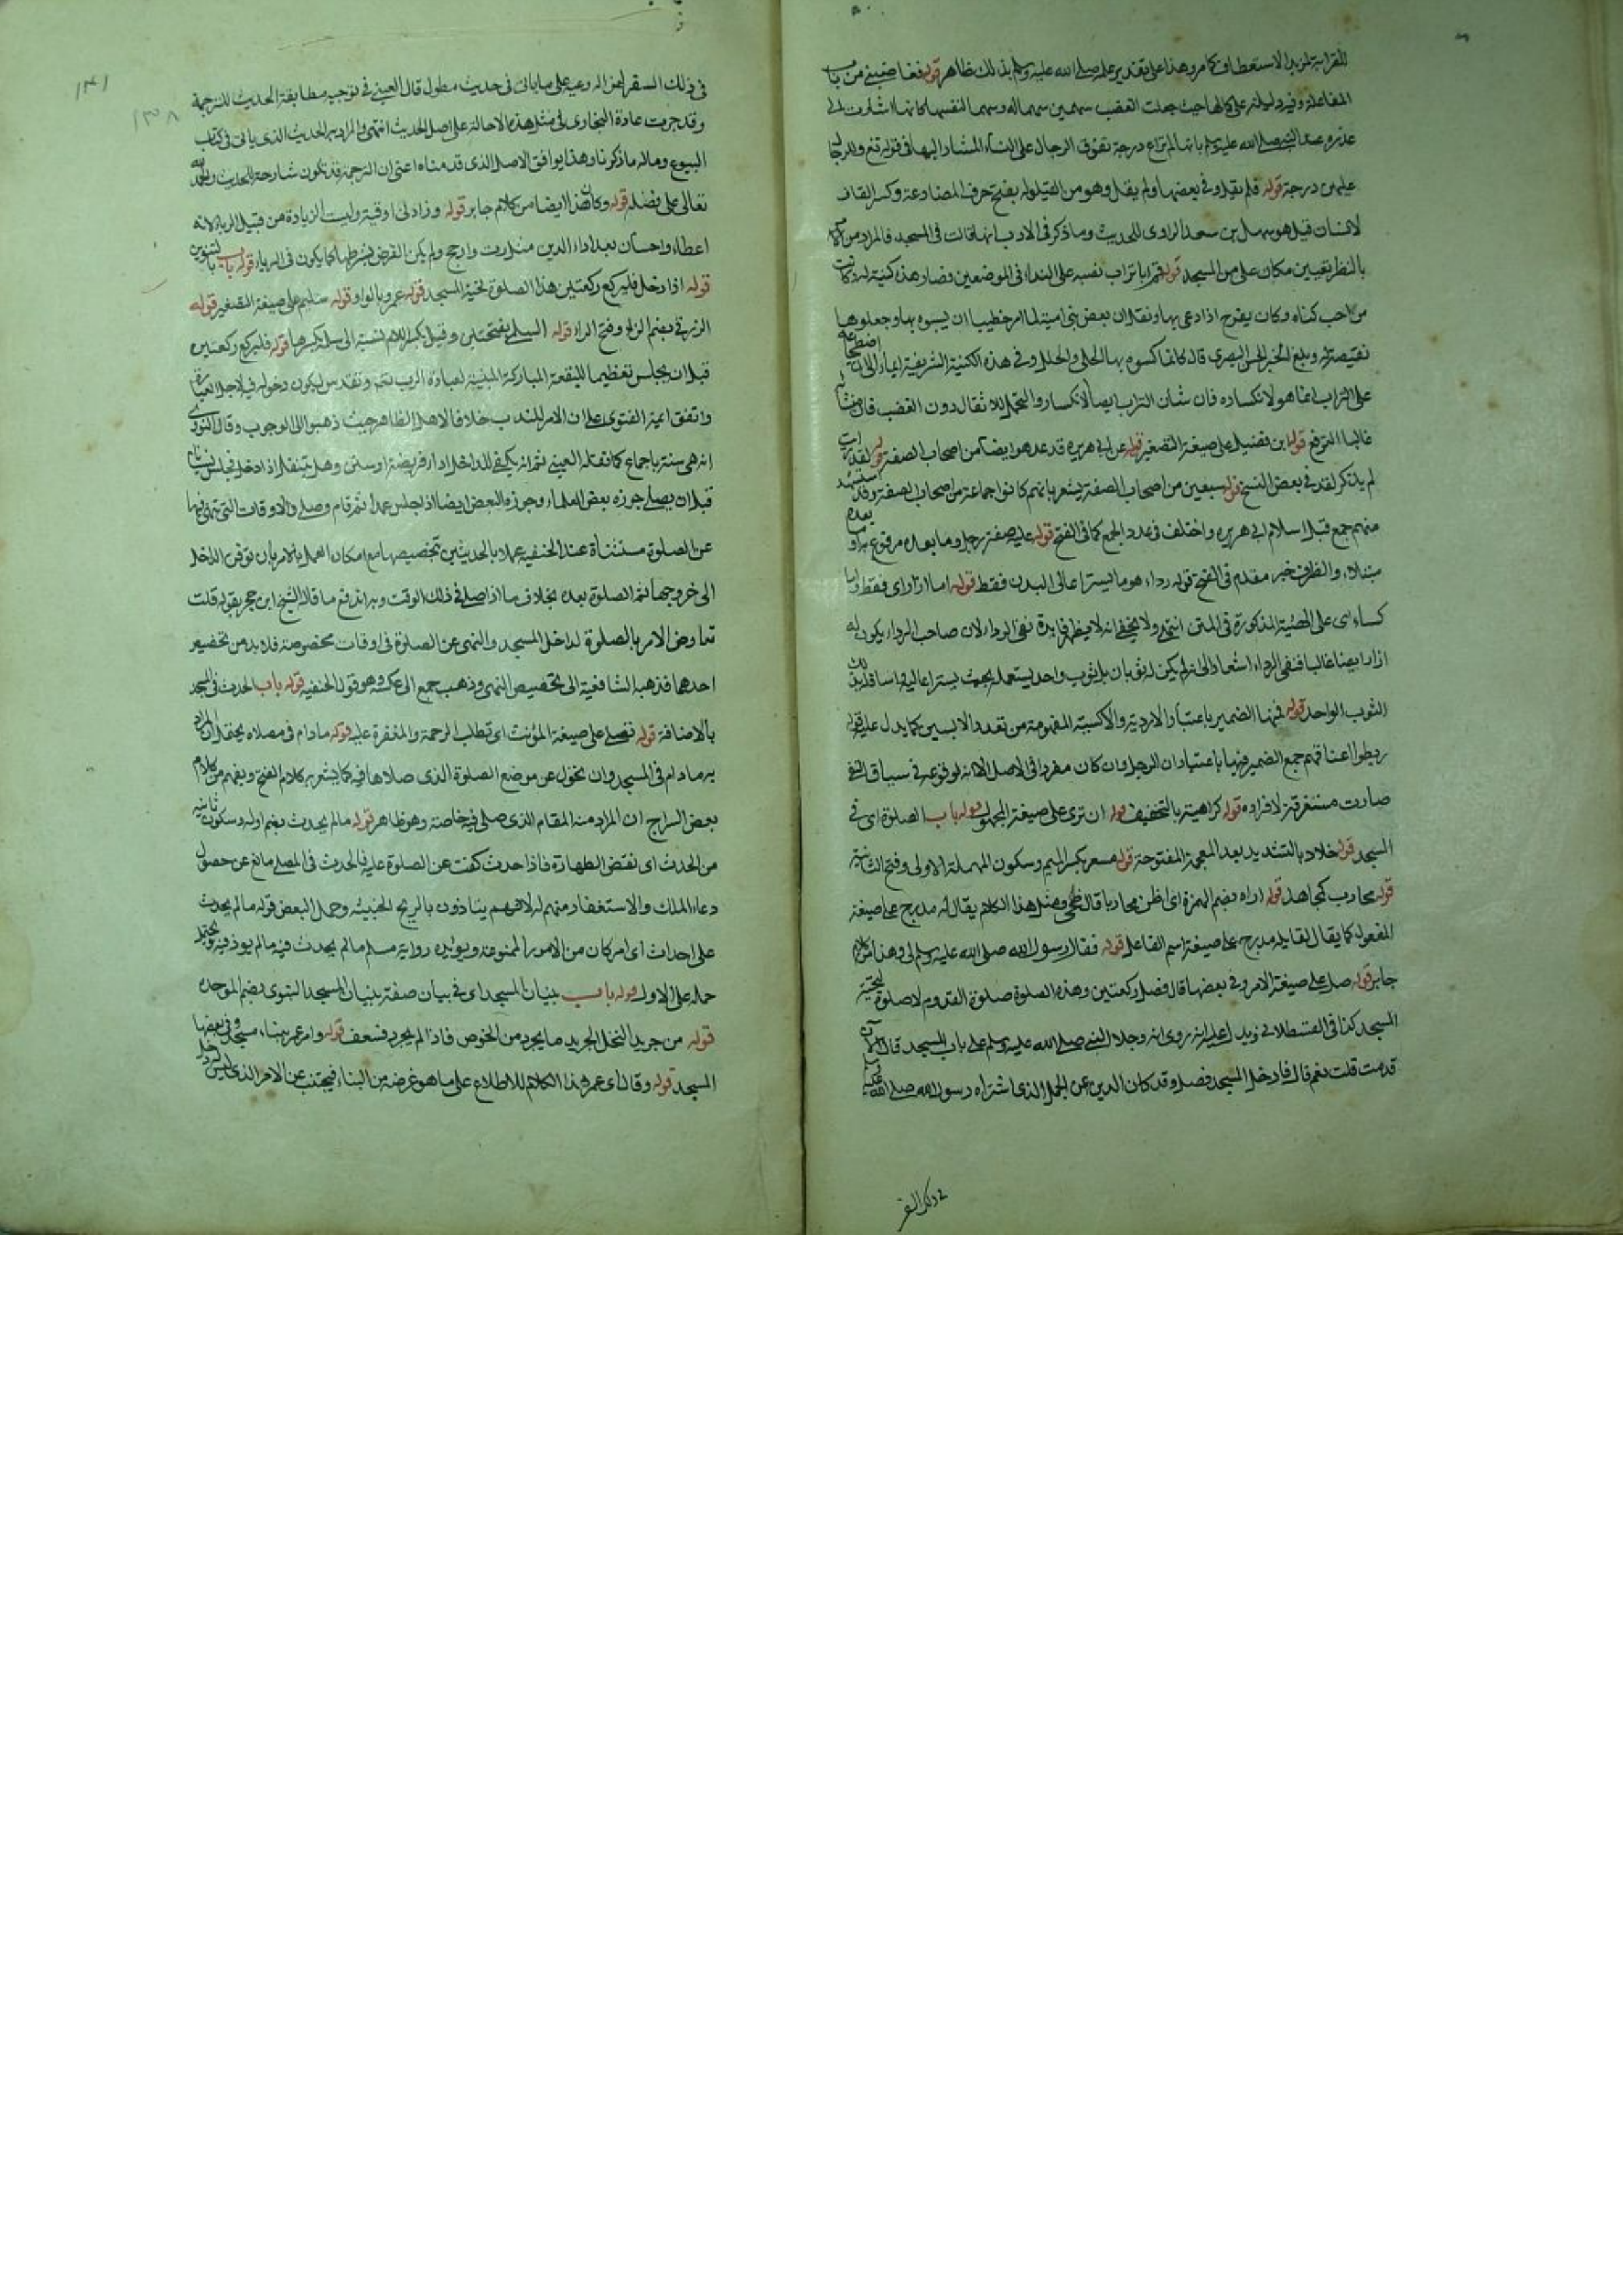 للقرابة لمزيد الاستعطاف كما مر وهذا على تقدير علمه صلى الله عليه وسلم بذلك ظاهر قوله فغاضبني من باب
المفاعلة وفيه دليل على كمالها حيث جعلت الغضب سهمين سهما له وسهما لنفسها كانها اشارت الى
عذره عند النبي صلى الله عليه وسلم بانها لم تراع درجة تفوق الرجال على النساء المشار اليها في قوله تع وللرجال
عليهن درجة قوله فلم يقل وفي بعضها ولم يقل وهو من القيلولة بفتح حرف المضارعة وكسر القاف
لانسان قيل هو سهل بن سعد الراوي للحديث وما ذكر في الادب انها قالت في المسجد فالمراد من
بالنظر تعيين مكان علي من المسجد قوله قم ابا تراب نصبه على النداء في الموضعين وصار هذه كنية له وكانت
من احب كناه وكان يفرح اذا دعي بها ونقل ان بعض بني امية لما امر خطيبا ان يسبوه بها وجعلوها
نقيصة له وبلغ الخبر الحسن البصري قال كانما كسوه بها الحلي والحلل وفي هذه الكنية الشريفة ايماء الى ان اضطجاعه
على التراب انما هو لانكساره فان شأن التراب ايضا الانكسار والتحمل للاثقال دون الغضب فان منشأه
غالبا الترفع قوله ابن فضيل على صيغة التصغير قوله عن ابي هريرة قد عد هو ايضا من اصحاب الصفة قوله لقد رأيت
لم يذكر لقد في بعض النسخ قوله سبعين من اصحاب الصفة يشعر بانهم كانوا جماعة من اصحاب الصفة وقد استشهد
منهم جمع قبل اسلام ابي هريرة واختلف في عدد الجمع كما في الفتح قوله عليه صفة رجل وما بعده مرفوع به او ما بعده
مبتداء والظرف خبر مقدم في الفتح قوله رداء هو ما يستر اعالي البدن فقط قوله اما ازار اي فقط واما
كساء اي على الهيئة المذكورة في المتن انتهى ولا يخفى انه لا يظهر فايدة نفي الرداء لان صاحب الرداء يكون له
ازار ايضا غالبا فنفى الرداء اشعارا الى انه لم يكن له ثوبان بل ثوب واحد يستعمله بحيث يستر اعاليه اسافله ذلك
الثوب الواحد قوله فمنها الضمير باعتبار الاردية والاكسية المفهومة من تعدد الابسين كما يدل عليه قوله
ربطوا اعناقهم جمع الضمير فيها باعتبار ان الرجل وان كان مفردا في الاصل الا انه لوقوعه في سياق النفي
صارت مستغرقة لافراده قوله كراهية بالتخفيف قوله ان ترى على صيغة المجهول قوله باب الصلوة اي في
المسجد قوله خلاد بالتشديد بعد المعجمة المفتوحة قوله مسعر بكسر الميم وسكون المهملة الاولى وفتح الثانية
قوله محارب كمجاهد قوله اراه بضم الهمزة اي اظن محاربا قال ضحى ومثل هذا الكلام يقال له مدرج على صيغة
المفعول كما يقال لقايله مدرج على صيغة اسم الفاعل قوله فقال رسول الله صلى الله عليه وسلم لي وهذا من كلام
جابر قوله صل على صيغة الامر وفي بعضها قال فصل ركعتين وهذه الصلوة صلوة القدوم لا صلوة تحية
المسجد كذا في القسطلاني ويدل عليه انه روي انه وجد النبي صلى الله عليه وسلم على باب المسجد قال الآن
قدمت قلت نعم قال فادخل المسجد فصل وقد كان الدين عن الجمل الذي اشتراه رسول الله صلى الله عليه وسلم
في ذلك السفر
١٣١
١٣٠٨
في ذلك السفر لمن اله وعيه على ما ياتي في حديث مطول قال العيني في توجيه مطابقة الحديث للترجمة
وقد جرت عادة البخاري في مثل هذه الاحالة على اصل الحديث انتهى والمراد به الحديث الذي ياتي في كتاب
البيوع وماله ما ذكرنا وهذا يوافق الاصل الذي قدمناه اعني ان الترجمة قد تكون شارحة للحديث والحمد لله
تعالى على فضله قوله وكان هذا ايضا من كلام جابر قوله وزادني اوقية وليست الزيادة من قبيل الربا لانه
اعطاء واحسان بعد اداء الدين مثل زت وارجح ولم يكن القرض بشرطها كما يكون في الرباء قوله باب بالتنوين
قوله اذا دخل فليركع ركعتين هذا الصلوة تحية المسجد قوله عمرو بالواو قوله سليم على صيغة التصغير قوله
الزرقي بضم الزاء وفتح الراء قوله السلمي بفتحتين وقيل بكسر اللام نسبة الى سلمة بكسرها قوله فليركع ركعتين
قبل ان يجلس تعظيما للبقعة المباركة المبنية لعبادة الرب تعم وتقدس ليكون دخوله فيه لاجل العبادة
واتفق ايمة الفتوى على ان الامر للندب خلافا لاهل الظاهر حيث ذهبوا الى الوجوب وقال النووي
انه هي سنة باجماع كما نقله العيني ثم انه يكفي للداخل اداء فريضة او سنن وهل يتنفل اذا دخل فجلس نسيانا
قبل ان يصلي جوزه بعض العلماء وجوزه البعض ايضا اذا جلس عمدا ثم قام وصلى والاوقات التي نهى فيها
عن الصلوة مستثناة عند الحنفية عملا بالحديثين تخصيصها مع امكان العمل بالامر بان توقف الداخل
الى خروجها ثم الصلوة بعده بخلاف ما اذا صلى في ذلك الوقت وبه اندفع ما قاله الشيخ ابن حجر بقوله قلت
تعارض الامر بالصلوة لداخل المسجد والنهي عن الصلوة في اوقات مخصوصة فلا بد من تخصيص
احدهما فذهب الشافعية الى تخصيص النهي وذهب جمع الى عكسه وهو قول الحنفية قوله باب الحدث في المسجد
بالاضافة قوله تصلي على صيغة المؤنث اي تطلب الرحمة والمغفرة عليه قوله مادام في مصلاه يحتمل ان المراد
به مادام في المسجد وان تحول عن موضع الصلوة الذي صلاها فيه كما يشعر به كلام الفتح ويفهم من كلام
بعض السراج ان المراد منه المقام الذي صلى فيه خاصة وهو ظاهر قوله مالم يحدث بضم اوله وسكون ثانيه
من الحدث اي نقض الطهارة فاذا حدث كفت عن الصلوة عليه فالحدث في المصلى مانع عن حصول
دعاء الملك والاستغفار منهم له لانهم يتاذون بالريح الخبيثه وحمل البعض قوله مالم يحدث
على احداث اي امر كان من الامور الممنوعة ويويده رواية مسلم مالم يحدث فيه مالم يوذ فيه ويحتمل
حمله على الاول قوله باب بنيان المسجد اي في بيان صفة بنيان المسجد النبوي بضم الموحدة
قوله من جريد النخل الجريد ما يجرد من الخوص فاذا لم يجرد فسعف قوله وامر عمر ببناء مسجد وفي بعضها
المسجد قوله وقال اي عمر هذا الكلام للاطلاع على ما هو غرضه من البناء فيجتنب عن الامر الذي ليس له دخل